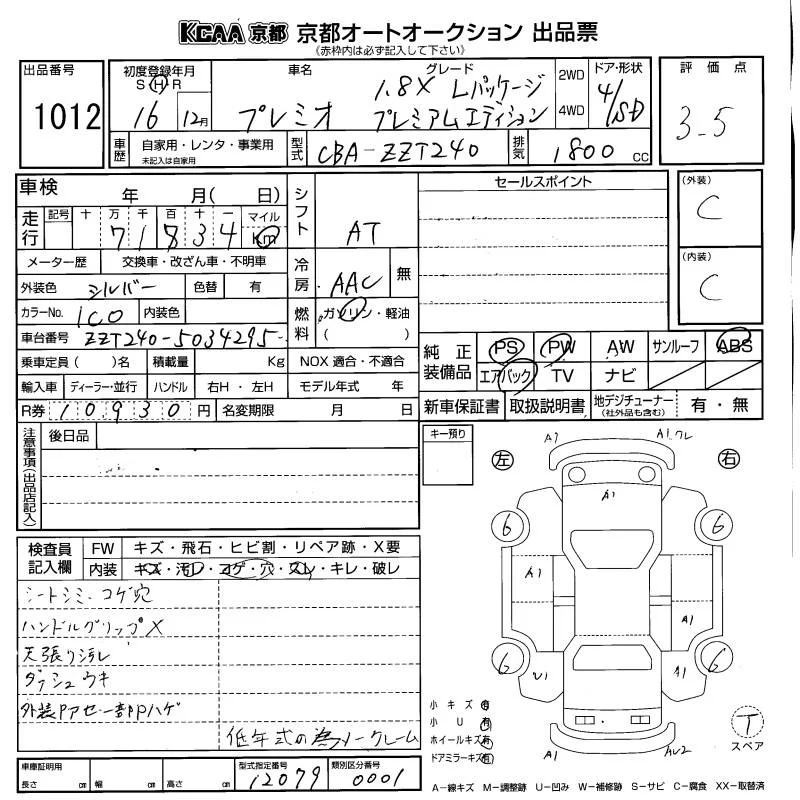 KCAA 京都 京都オートオークション 出品票
《赤枠内は必ず記入して下さい》
出品番号 1012
初度登録年月 S H R 16 12月
車名 プレミオ
グレード 1.8X Lパッケージ プレミアムエディション
2WD 4WD
ドア・形状 4/SD
評価点 3.5
車歴 自家用・レンタ・事業用 未記入は自家用
型式 CBA-ZZT240
排気 1800 CC
車検 年 月( 日)
シフト AT
セールスポイント
(外装) C
(内装) C
走行 記号 十 万 千 百 十 一 マイル km
71834
メーター歴 交換車・改ざん車・不明車
冷房 AAC 無
外装色 シルバー 色替 有
カラーNo. 1C0 内装色
燃料 ガソリン・軽油 ( )
車台番号 ZZT240-5034295
乗車定員 ( )名 積載量 Kg NOX 適合・不適合
輸入車 ディーラー・並行 ハンドル 右H・左H モデル年式 年
R券 10930円 名変期限 月 日
純正装備品 PS PW AW サンルーフ ABS
エアバック TV ナビ
新車保証書 取扱説明書 地デジチューナー (社外品も含む) 有・無
注意事項(出品店記入) 後日品
キー預り
左 右
A1 A1.クレ
A1
6 6
A1
A1
6 6
U1 A1
A1 AU2
検査員記入欄 FW キズ・飛石・ヒビ割・リペア跡・X要
内装 キズ・汚れ・コゲ・穴・スレ・キレ・破レ
シートシミ・コゲ穴
ハンドルグリップX
天張り汚レ
ダッシュウキ
外装PアセP一部Pハゲ
低年式の為ノークレーム
小キズ 有
小U 有
ホイールキズ 有
ドアミラーキズ 有
T
スペア
車庫証明用 長さ cm 幅 cm 高さ cm
型式指定番号 12079
類別区分番号 0001
A−線キズ M−調整跡 U−凹み W−補修跡 S−サビ C−腐食 XX−取替済